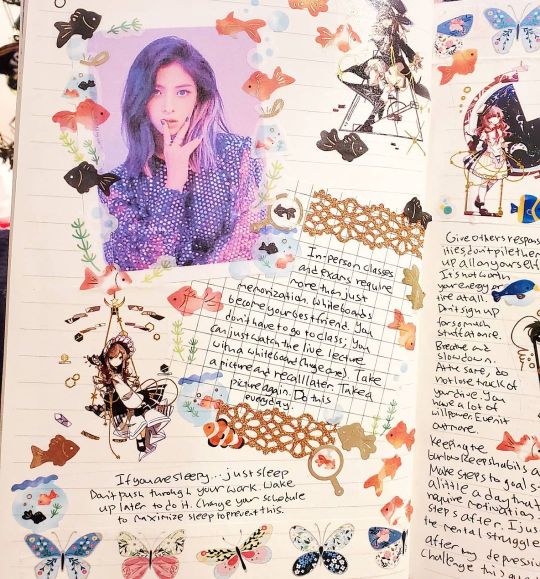 In-person classes
and exams require
more than just
memorization. Whiteboards
become your best friend. You
don't have to go to class; you
can just watch the live lecture
with a whiteboard (huge one). Take
a picture and recall later. Take a
picture again. Do this
everyday.
If you are sleepy... just sleep
Don't push through your work. Wake
up later to do it. Change your schedule
to maximize sleep to prevent this.
Give others respons
ities, don't pile them
up all on yourself
It's not worth
your energy or
time at all.
Don't sign up
for so much
stuff at once.
Breathe and
slow down.
At the same, do
not lose track of
your drive. You
have a lot of
willpower. Even it
out more.
Keeping the
Make steps to goal s
a little a day that
require motivation
steps after. I jus
the mental struggle
after my depressio
challenge this